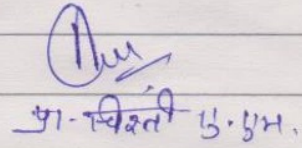 प्रा. चिश्ती ए. एम.